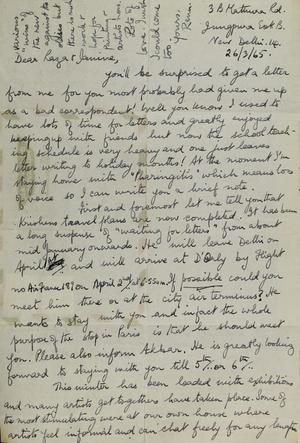 3 B Mathura Rd.
Jungpura Ext. B.
New Delhi-14.
26/3/65.
Dear Raza & Janine,
You'll be surprised to get a letter
from me for you most probably had given me up
as a bad correspondent! Well you know I used to
have lots of time for letters and greatly enjoyed
keeping up with friends but now the school teach-
ing schedule is very heavy and one just leaves
letter writing to holiday months! At the moment I'm
staying home with "Pharingitis" which means loss
of voice so I can write you a brief note.
First and foremost let me tell you that
Krishen's travel plans are now completed. It has been
a long suspense of "waiting for letters" from about
mid January onwards. He will leave Delhi on
April 1st and will arrive at Orly by Flight
no Air France 181 on April 2nd at 6.55 a.m. If possible could you
meet him there or at the city air terminus? He
wants to stay with you and infact the whole
purpose of the stop in Paris is that he should meet
you. Please also inform Akbar. He is greatly looking
forward to staying with you till 5th or 6th.
This winter has been loaded with exhibitions
and many artists get togethers have taken place. Some of
the most stimulating were at our own house where
artists feel informal and can chat freely for any length
various
"wins" of
the new
against the
older but
there is not
hope for
Painting
artists here.
Lots of
love. I wish
I could come
too
Yours,
Renu.